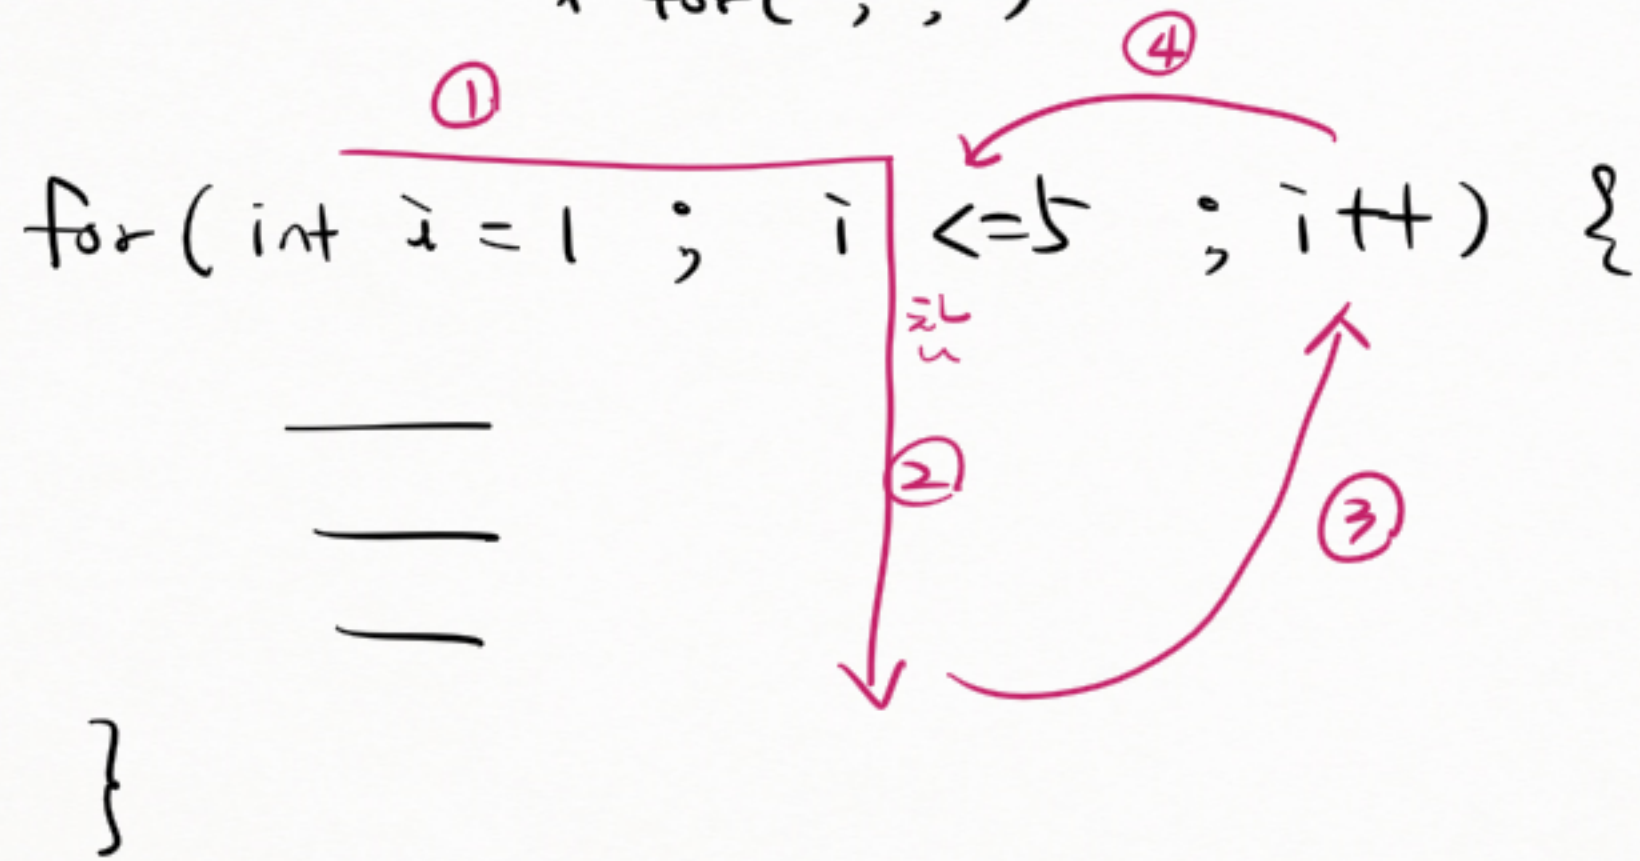 for( ; ; )
① ④
for( int i = 1 ; i <=5 ; i++) {
참
②
③
}